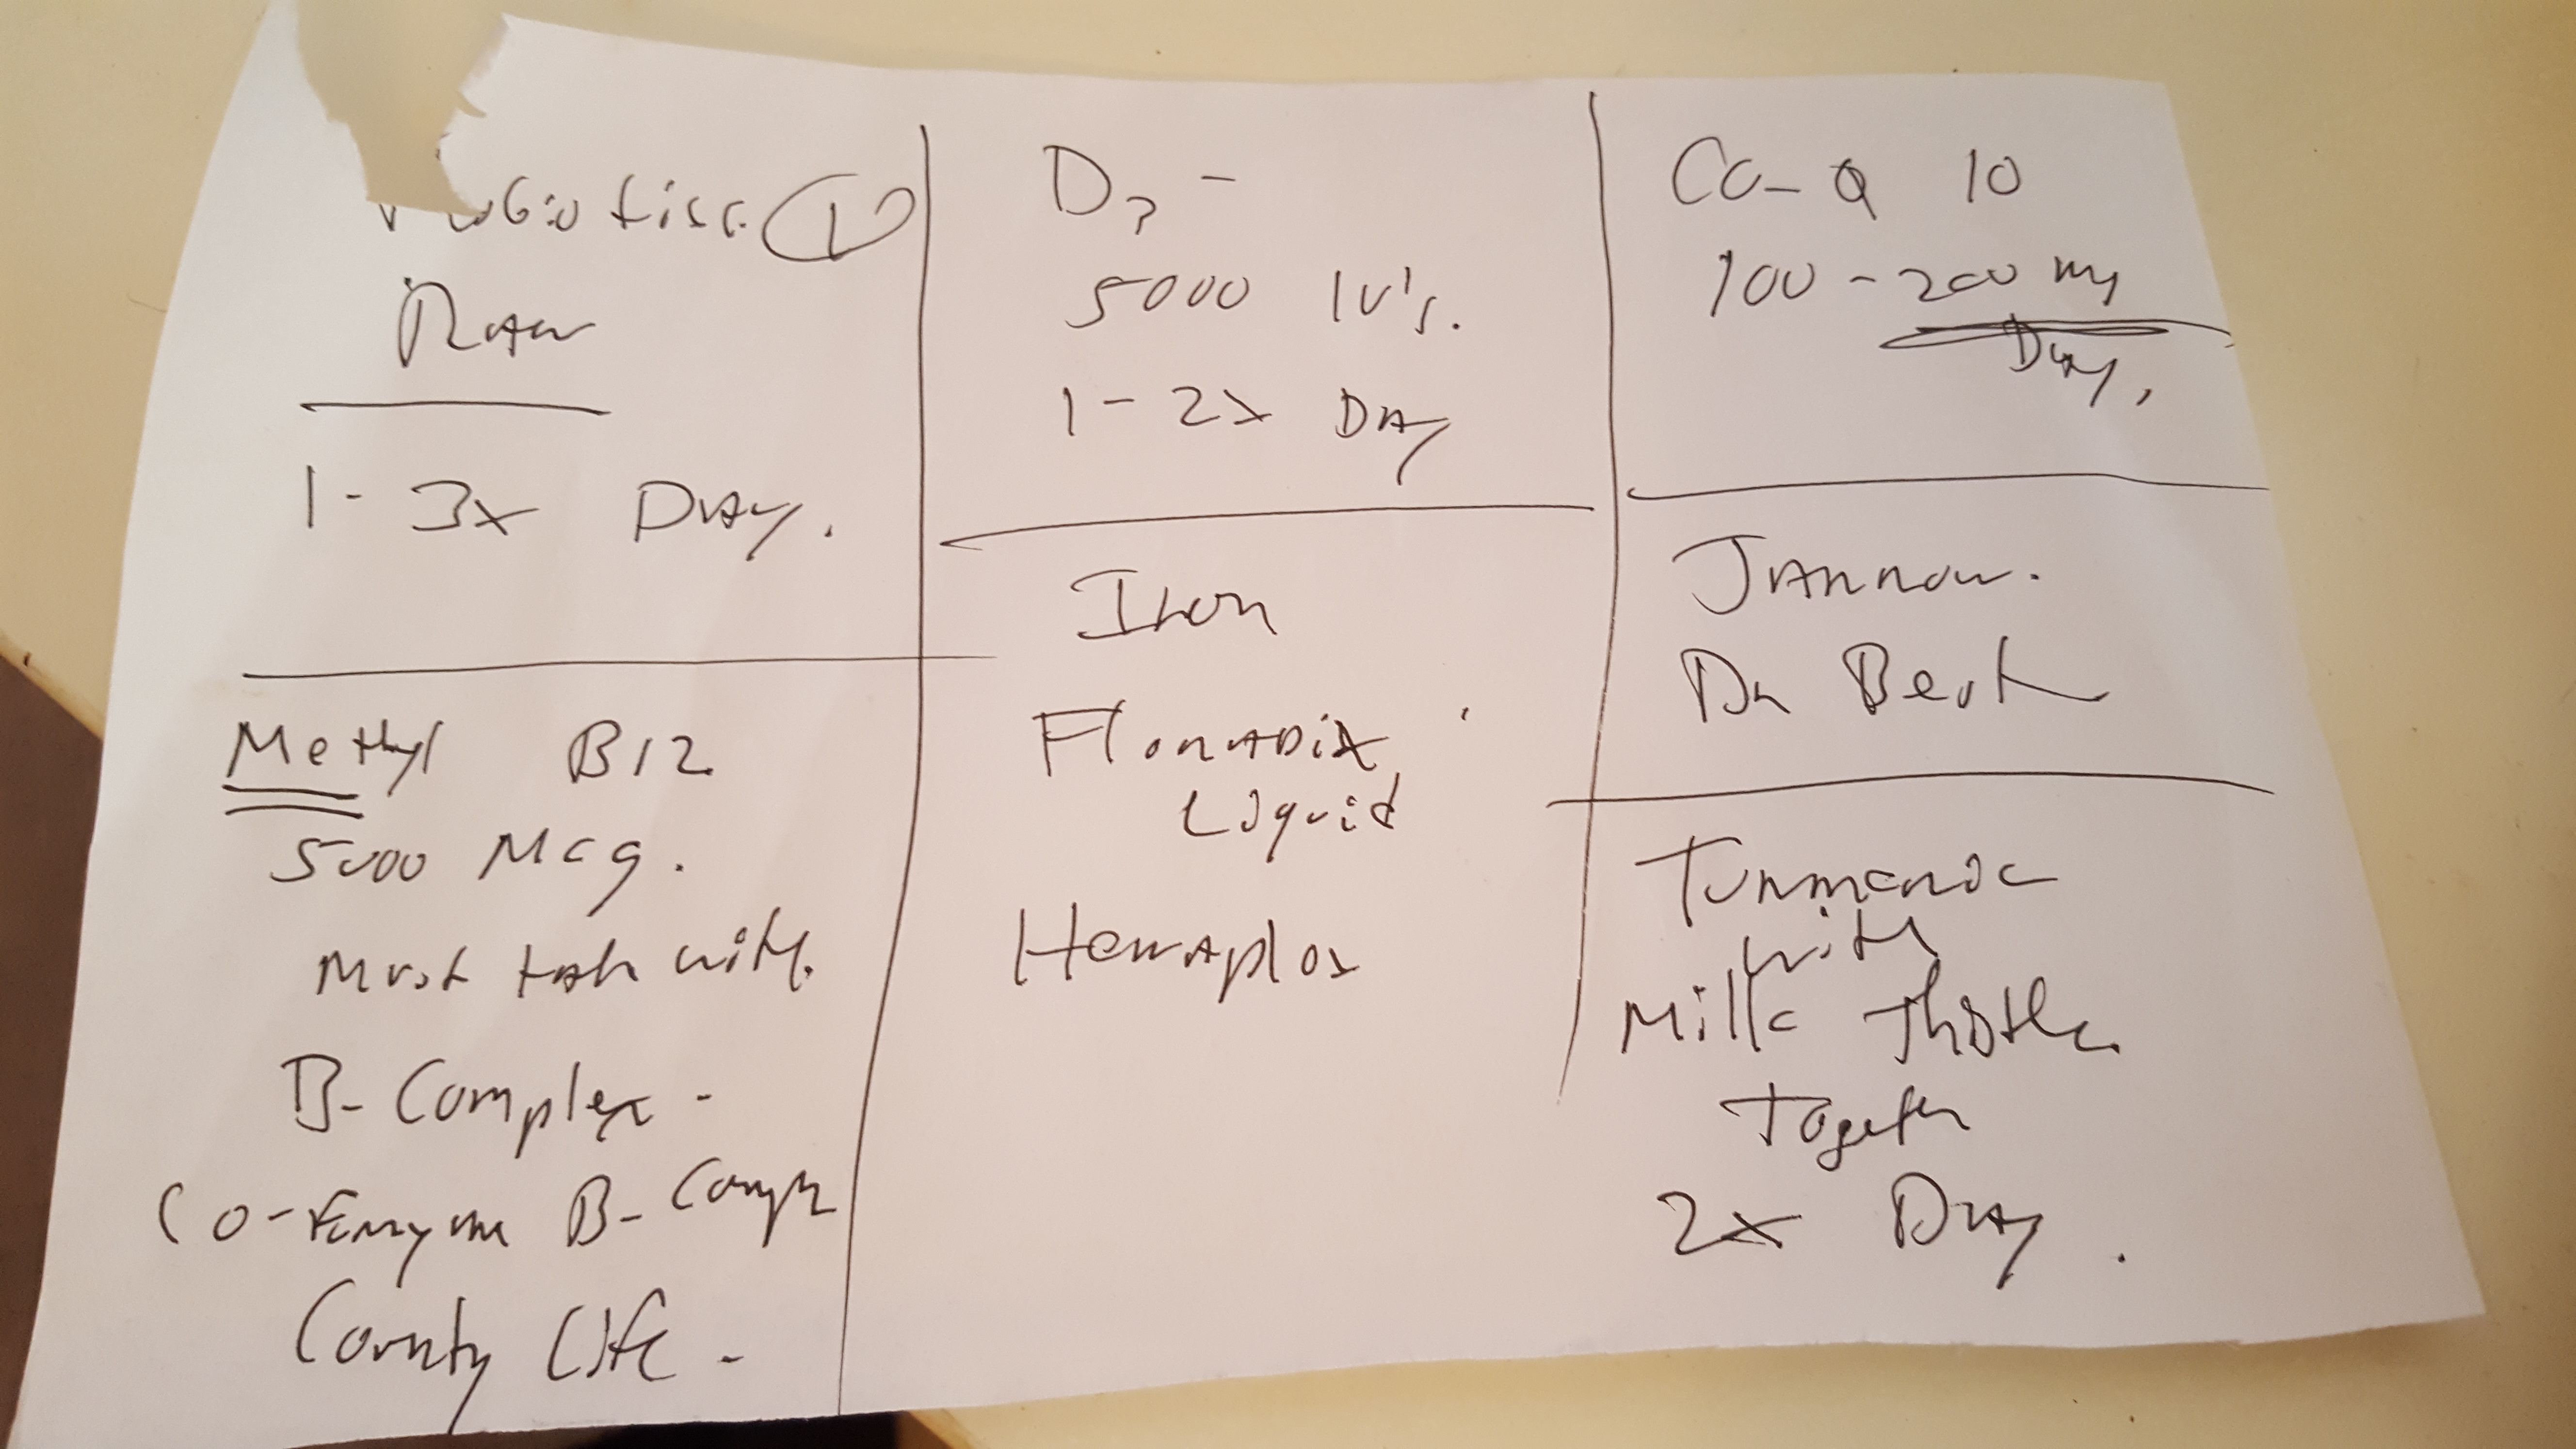 Probiotics. 1
Raw
1 - 3x Day.
Methyl B12
5000 Mcg.
Must take with
B- Complex -
Co-Enzyme B- Complex
Country Life -
D3 -
5000 IU's.
1 - 2x Day
Iron
Floradix
Liquid
Hemaplex
Co-Q 10
100 - 200 mg
Day,
Jarrow.
Dr Best
Turmeric
with
Milk Thistle
Together
2x Day.